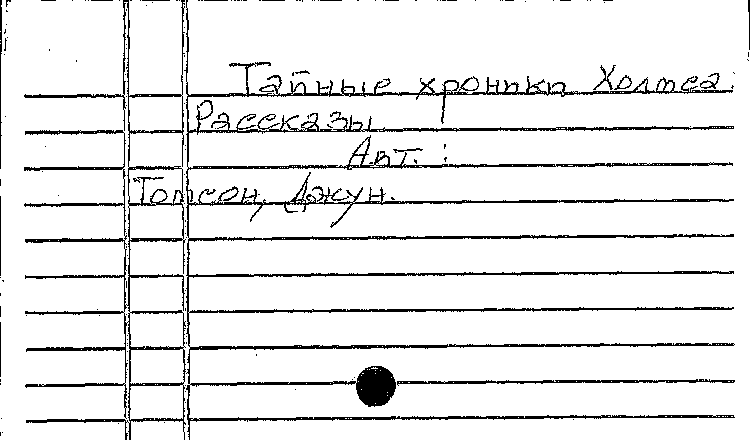 Тайные хроники Холмса:
Рассказы
Авт. :
Томсон, Джун.